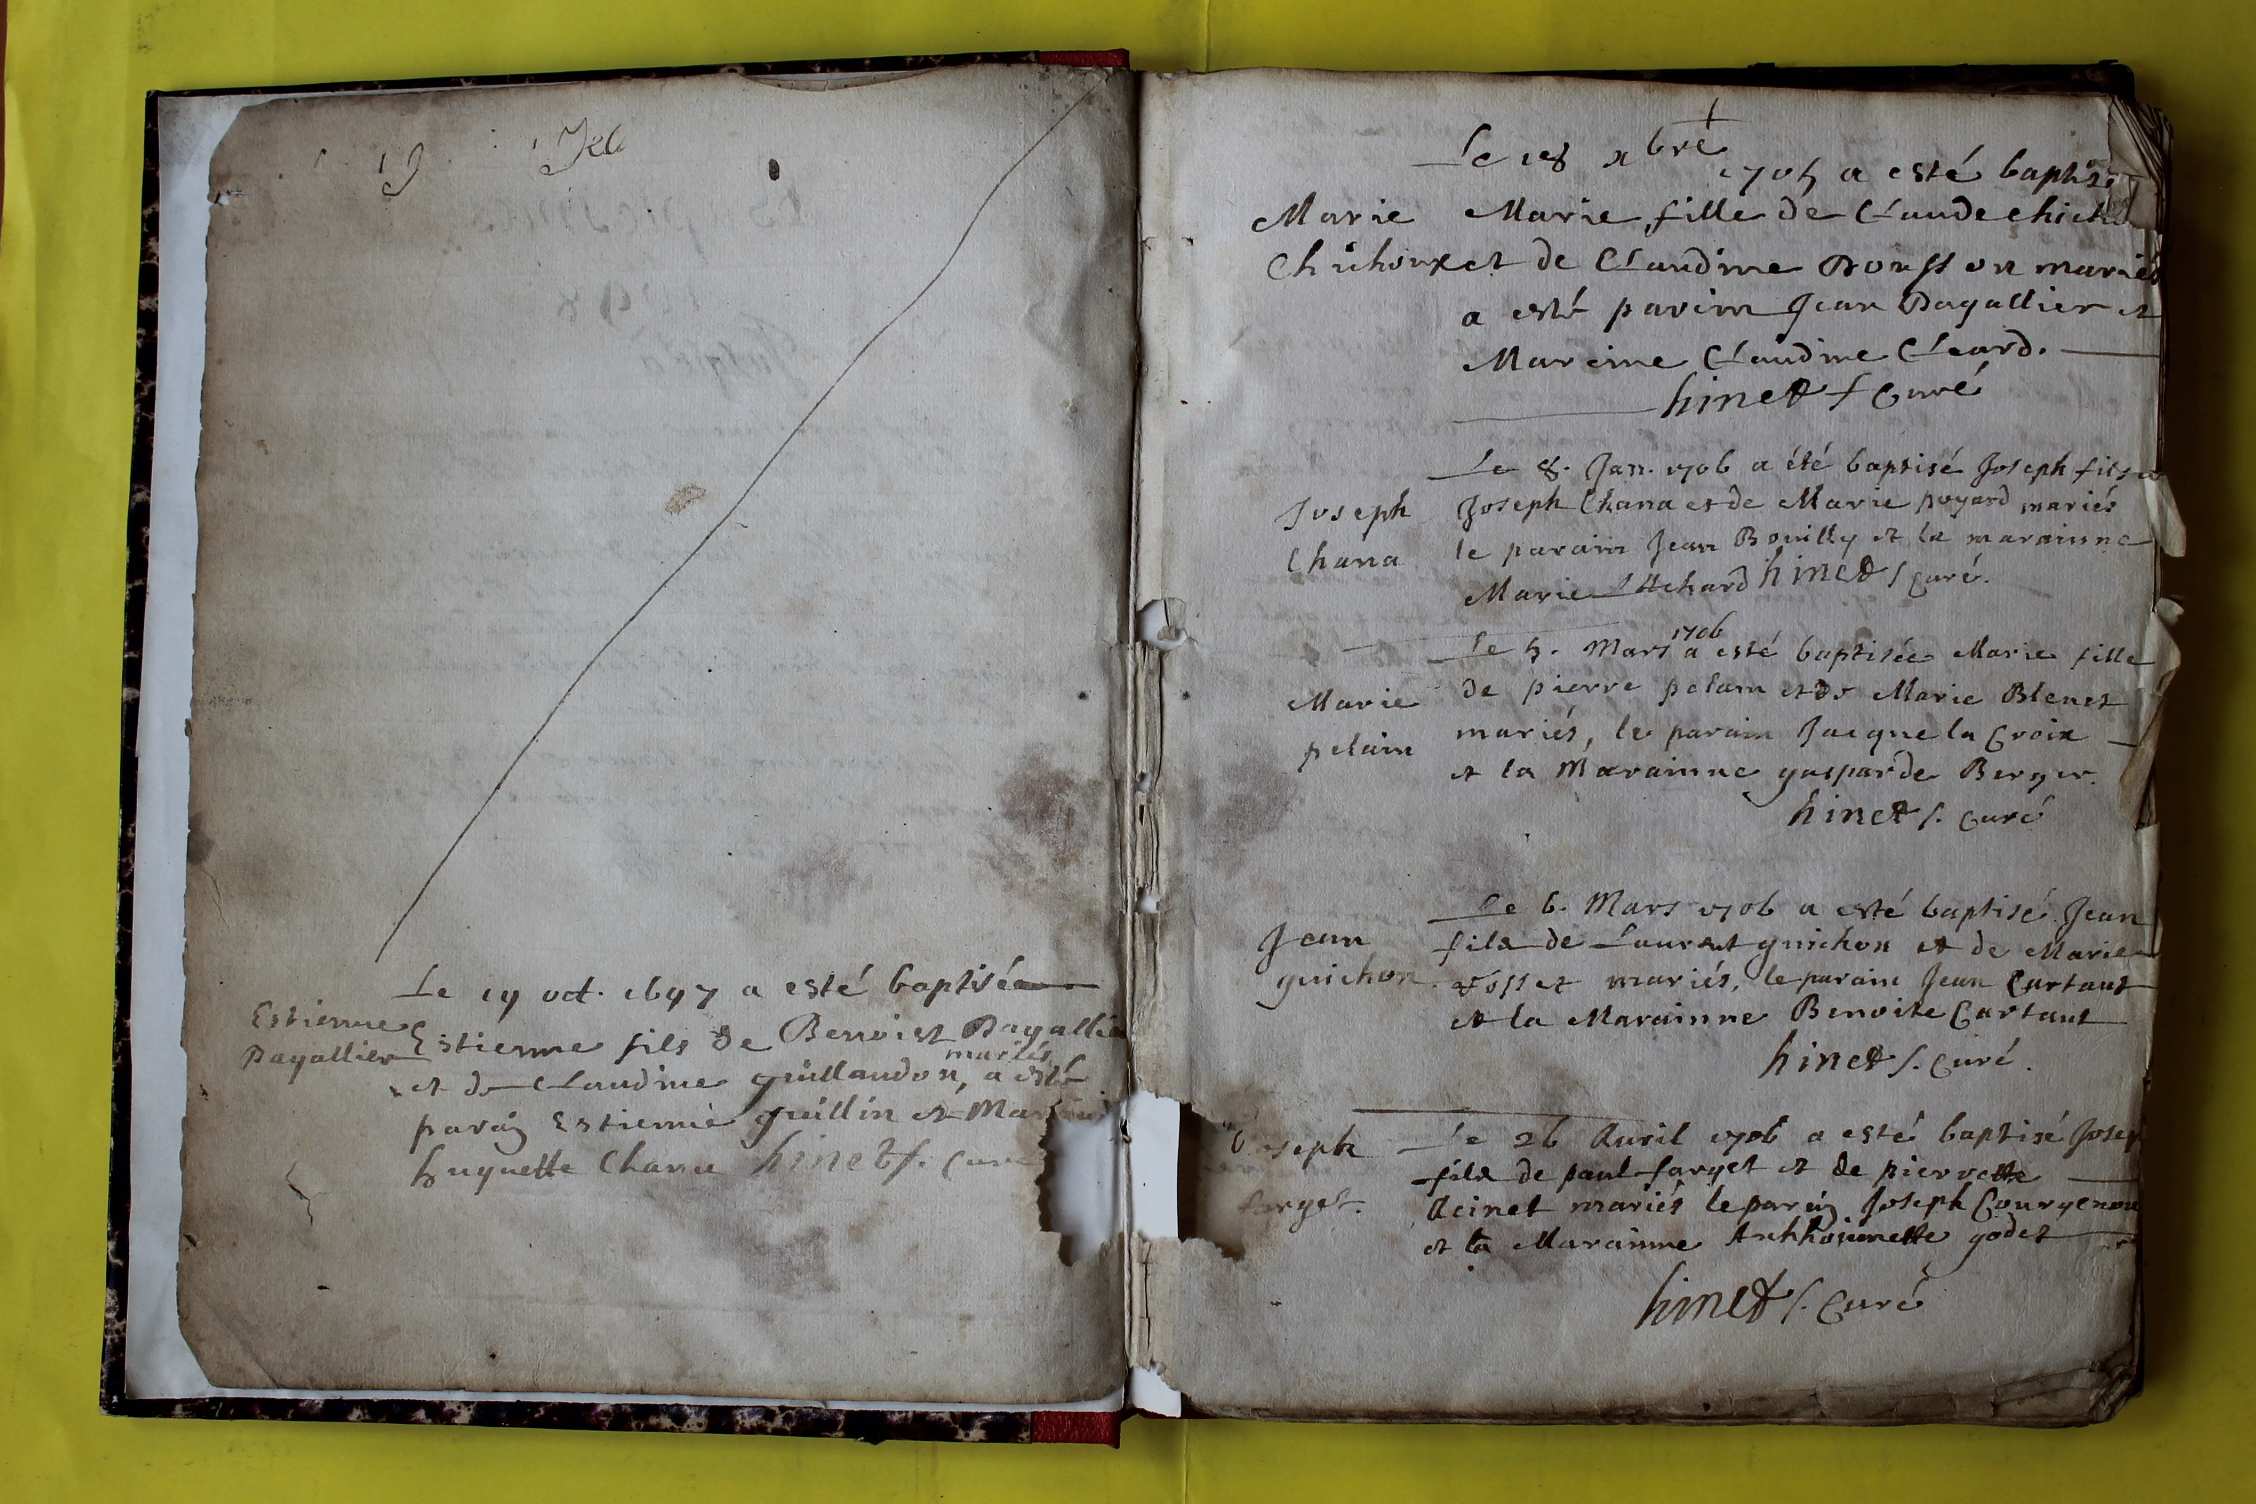 Le 19 oct. 1697 a esté baptisée
Estienne
Dagallier
Estienne fils de Benoist Dagallier
mariés
et de Claudine guillaudon, a esté
parain Estienne guillin et
huguette Chana hinet s. Curé
Le 18 xbre
1705 a esté baptisé
Marie
Chichoux
Marie fille de Claude
et de Claudine Bousson mariés
a esté parein Jean Dagallier et
Mareine Claudine Cleard.
hinet s Curé
Joseph
Chana
Le 8. Jan. 1706 a été baptisé Joseph fils de
Joseph Chana et de Marie poyard mariés
le parain Jean Bouilly et la marainne
Marie hinet s curé.
Marie
pelain
1706
Le 5. Mars a esté baptisée Marie fille
de pierre pelain et de Marie Blenet
mariés, le parain Jacque la Croix
et la Marainne gasparde Berger.
hinet s. curé
Jean
guichon
Le 6. Mars 1706 a esté baptisé Jean
fils de Laurent guichon et de Marie
mariés, le parain Jean Curtaut
et la Marainne Benoite Curtaut
hinet s. Curé.
Joseph
farget.
Le 26 Auril 1706 a esté baptisé Joseph
fils de paul farget et de pierrette
mariés le parain Joseph
et la Marainne Anthoinette godet
hinet s. Curé